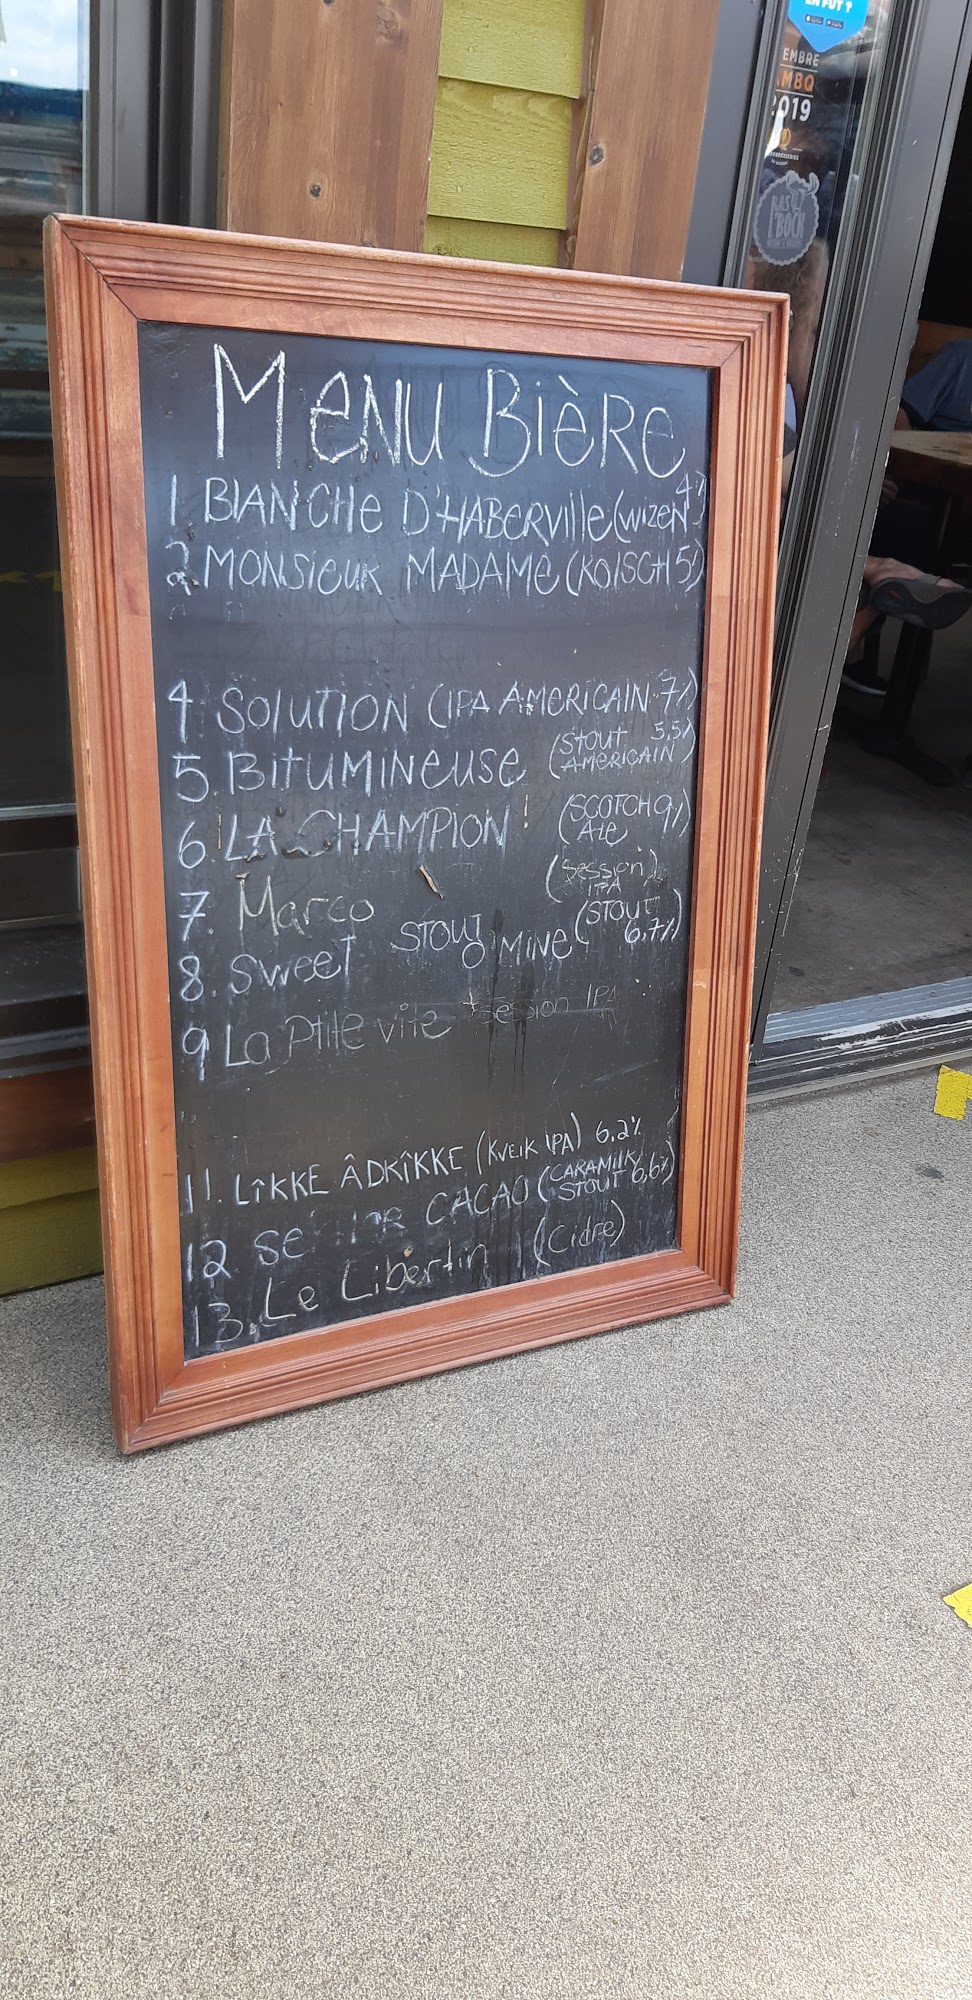 EN FÛT ?
EMBRE
AMBQ
2019
MENU BIÈRE
1. BLANCHE D'HABERVILLE (WIZEN 4%)
2. MONSIEUR MADAME (KOLSCH 5%)
4. SOLUTION (IPA AMERICAIN 7%)
5. BITUMINEUSE (STOUT 5,5% AMERICAIN)
6. LA CHAMPION (SCOTCH 9% ALE)
7. Marco (Session IPA)
8. SWEET STOUT O MINE (STOUT 6,7%)
9 La Ptite vite Session IPA
11. LÎKKE ÂDKÎKKE (KVEIK IPA) 6.2%
12 CACAO (CARAMILK STOUT 6,6%)
13. Le Libertin (Cidre)